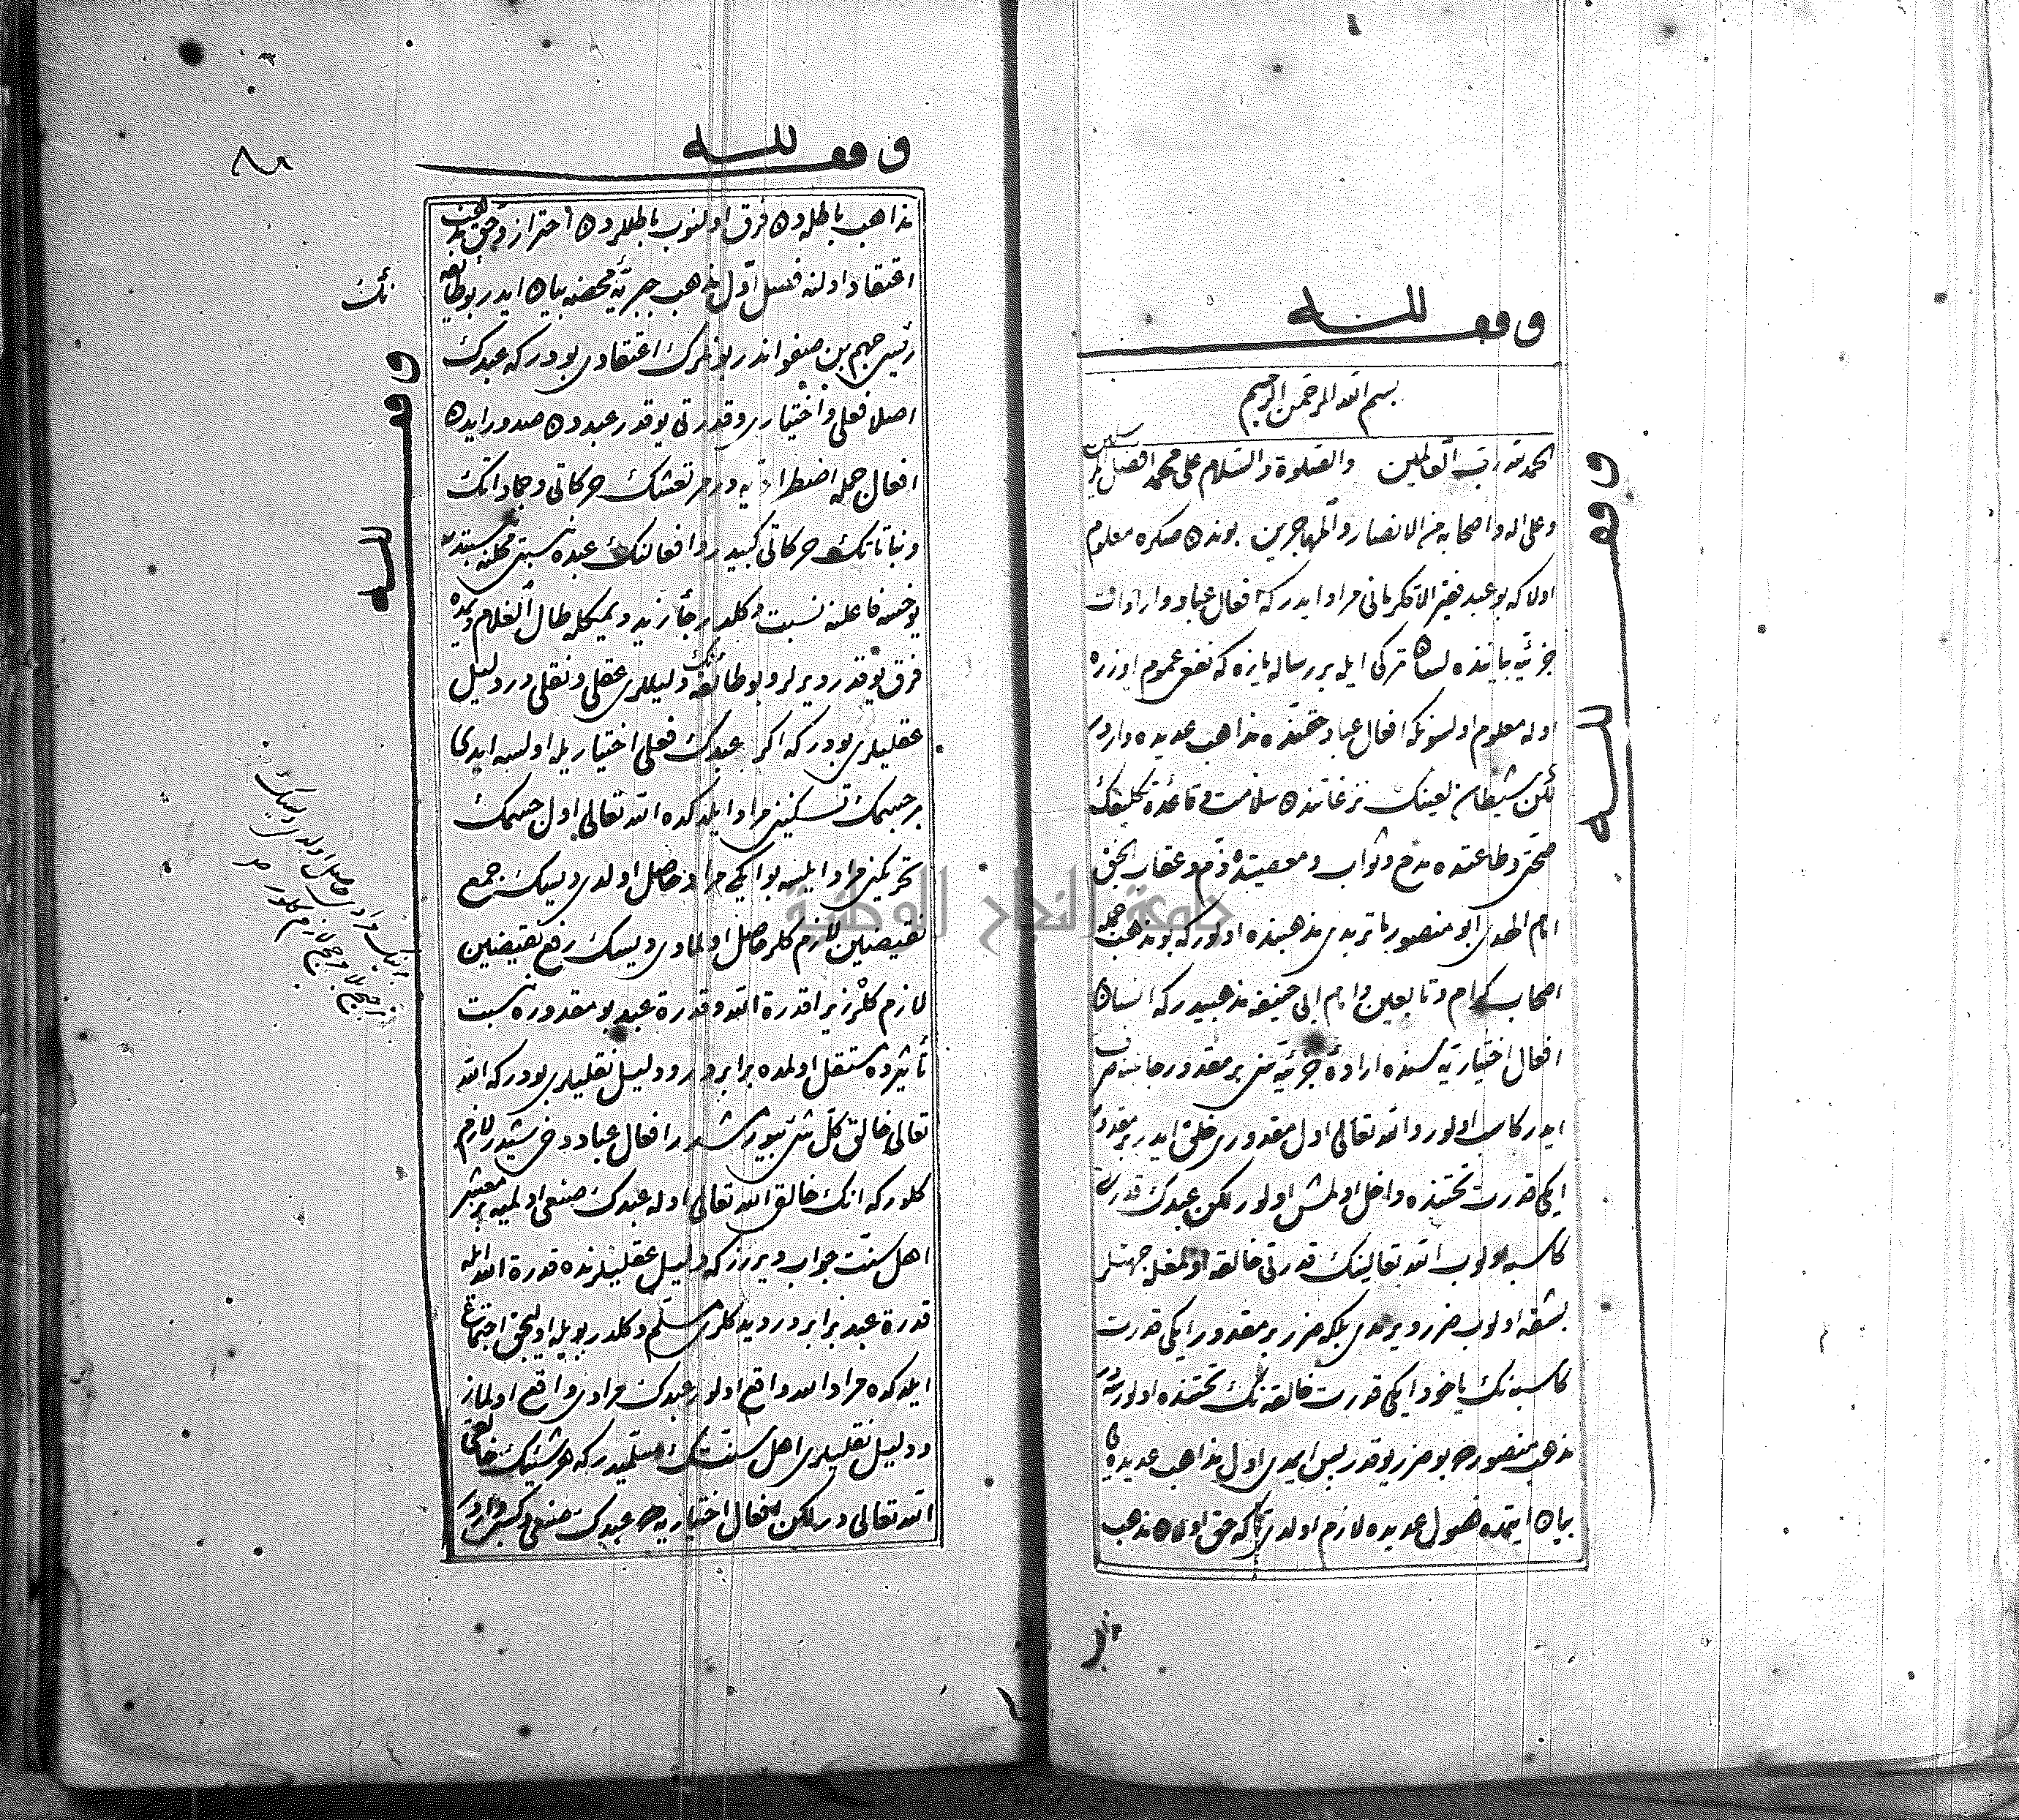 وقف لله
بسم الله الرحمن الرحيم
الحمد لله رب العالمين والصلوة والسلام على محمد افضل المرسلين
وعلى اله واصحابه من الانصار والمهاجرين بوندن صكره معلوم
اولا كه بو عبد فقير الاقكرمانى مراد ايدر كه افعال عباد و ارادات
جزئيه بياننده لسان تركى ايله بر رساله يازه كه نفعى عموم اوزره
اوله معلوم اولسونكه افعال عباد حقنده مذاهب عديده واردر
لكن شيطان لعينك نزغاتندن سلامت و قاعدۀ تكليفك
صحتى و طاعتده مدح و ثواب و معصيتده ذم و عقاب الحق
امام الهدى ابو منصور ماتريدى مذهبنده اولور كه بو مذهب جمله
اصحاب كرام و تابعين و امام ابى حنيفه مذهبيدر كه انسان
افعال اختياريه سنده ارادۀ جزئيه سنى بر مقدور جانبنه صرف
ايدر كاسب اولور و الله تعالى اول مقدورى خلق ايدر بر مقدور
ايكى قدرت تحتنده داخل اولمش اولور لكن عبدك قدرتى
كاسبه اولوب الله تعالينك قدرتى خالقه اولمغله جهتلر
بشقه اولوب ضرر ويرمدى بلكه ضرر بر مقدور ايكى قدرت
كاسبه نك ياخود ايكى قدرت خالقه نك تحتنده اولورسه
مذهب منصورده بو ضرر يوقدر پس ايمدى اول مذاهب عديده يى
بيان ايتمده فصول عديده لازم اولدى تا كه حق اولان مذهب
وقف لله
وقف لله
مذاهب باطله دن فرق اولنوب باطللردن احتراز و حق مذهب
اعتقاد اولنه فصل اول مذهب جبريۀ محضه بيان ايدر بو طائفه
نك
رئيسى جهم بن صفواندر بونلرك اعتقادى بودر كه عبدك
اصلا فعلى و اختيارى و قدرتى يوقدر عبددن صدور ايدن
افعال جمله اضطراريه در مرتعشك حركاتى و جماداتك
و نباتاتك حركاتى كبيدر و افعالنك عبده نسبتى محلنه نسبتدر
يوخسه فاعلنه نسبت دكلدر جاء زيد ديمكله طال الغلام ديمده
فرق يوقدر ديرلر و بو طائفه نك دليللرى عقلى و نقلى در دليل
عقليلرى بودر كه اكر عبدك فعلى اختياريله اولسه ايدى
بر جسمك تسكينى مراد ايلدكده الله تعالى اول جسمك
تحريكنى مراد ايلسه بو ايكى مراد حاصل اولدى ديسك جمع
نقيضين لازم كلر حاصل اولمادى ديسك رفع نقيضين
لازم كلر زيرا قدرة الله و قدرة عبد بو مقدوره نسبت
تأثيرده مستقل اولمده برابردر و دليل نقليلرى بودر كه الله
تعالى خالق كل شئ بيورمشدر افعال عباد دخى شيدر لازم
كلور كه انك خالقى الله تعالى اوله عبدك صنعى اولميه بز معشر
اهل سنت جواب ويررز كه دليل عقليلرنده قدرة الله ايله
قدرة عبد برابردر ديدكلرى مسلم دكلدر بويله اوليجق اجتماع
ايلدكده مراد الله واقع اولور عبدك مرادى واقع اولماز
و دليل نقليلرى اهل سنتك مسلميدر كه هر شيئك خالقى
الله تعالى در لكن افعال اختياريه ده عبدك صنعى و كسبى واردر
برينك مرادى حاصل اولدى ديسك
ترجيح بلا مرجح لازم كلور صح
وقف لله